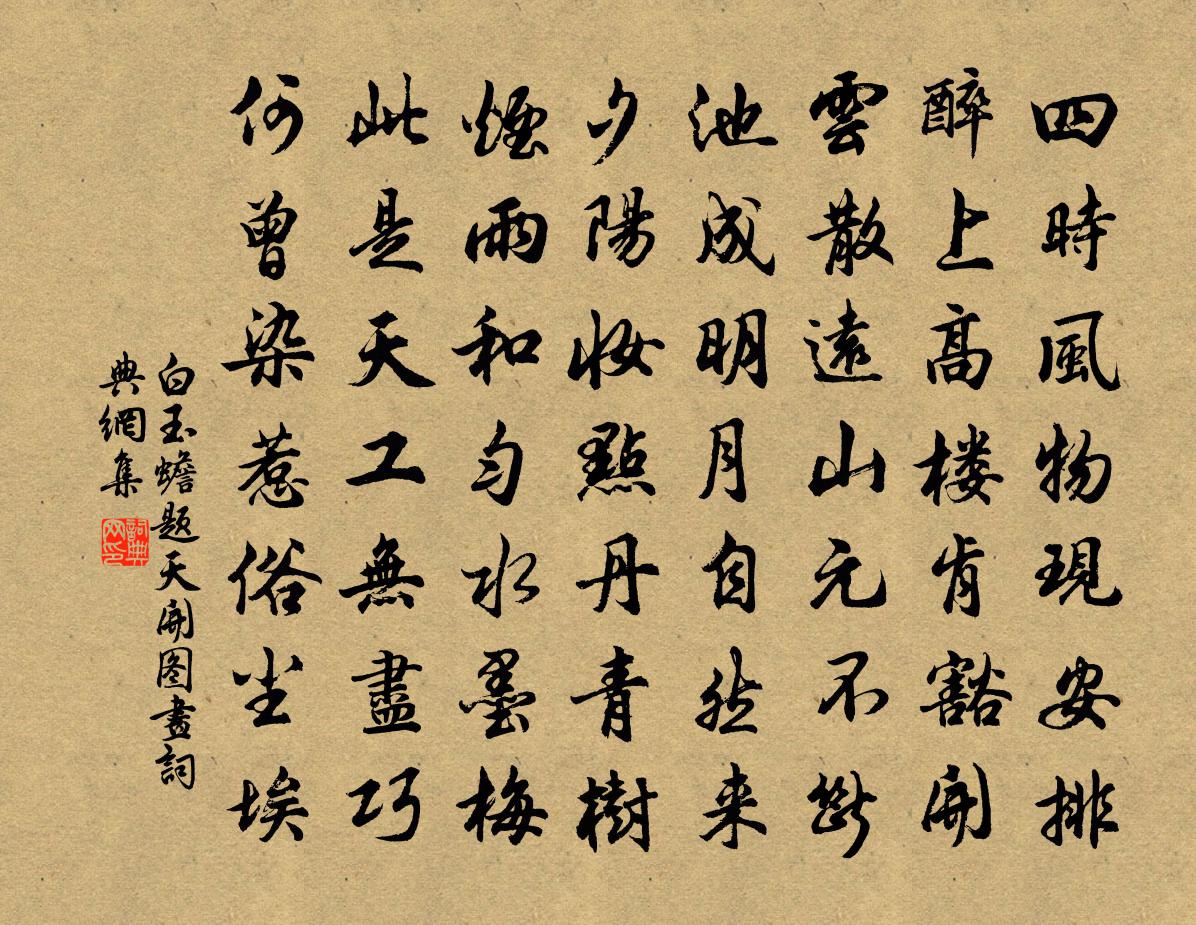 四時風物現安排
醉上高楼肯豁開
雲散遠山元不斷
池成明月自然来
夕陽妝點丹青樹
煙雨和勻水墨梅
此是天工無盡巧
何曾染惹俗尘埃
白玉蟾题天開图畫詞
典網集
詞典
网印